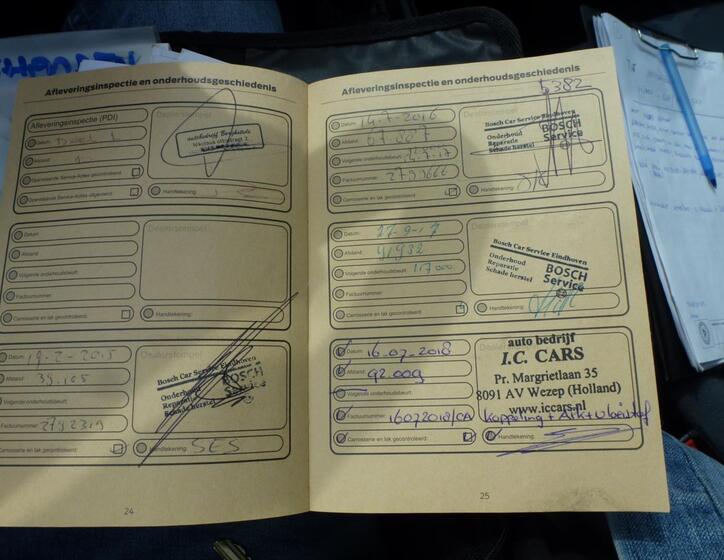 Afleveringsinspectie en onderhoudsgeschiedenis
Afleveringsinspectie (PDI)
Datum:
Afstand:
Openstaande Service-Acties gecontroleerd:
Openstaande Service-Acties uitgevoerd:
Dealerstempel
Handtekening:
Datum:
Afstand:
Volgende onderhoudsbeurt:
Factuurnummer:
Carrosserie en lak gecontroleerd:
Dealerstempel
Handtekening:
Datum: 19-2-2015
Afstand: 39.105
Volgende onderhoudsbeurt:
Factuurnummer: 2792319
Carrosserie en lak gecontroleerd:
Dealerstempel
Bosch Car Service Eindhoven
Onderhoud
Reparatie
Schade herstel
BOSCH
Service
Handtekening: SES
24
Afleveringsinspectie en onderhoudsgeschiedenis
5382
Datum: 14-7-2016
Afstand:
Volgende onderhoudsbeurt:
Factuurnummer: 2793666
Carrosserie en lak gecontroleerd:
Bosch Car Service Eindhoven
Onderhoud
Reparatie
Schade herstel
BOSCH
Service
Handtekening:
Datum:
Afstand: 91932
Volgende onderhoudsbeurt: 117000
Factuurnummer:
Carrosserie en lak gecontroleerd:
Dealerstempel
Bosch Car Service Eindhoven
Onderhoud
Reparatie
Schade herstel
BOSCH
Service
Handtekening:
Datum: 16-07-2018
Afstand: 92.009
Volgende onderhoudsbeurt:
Factuurnummer: 16072018/0A
Carrosserie en lak gecontroleerd:
auto bedrijf
I.C. CARS
Pr. Margrietlaan 35
8091 AV Wezep (Holland)
www.iccars.nl
Koppeling +
Handtekening:
25